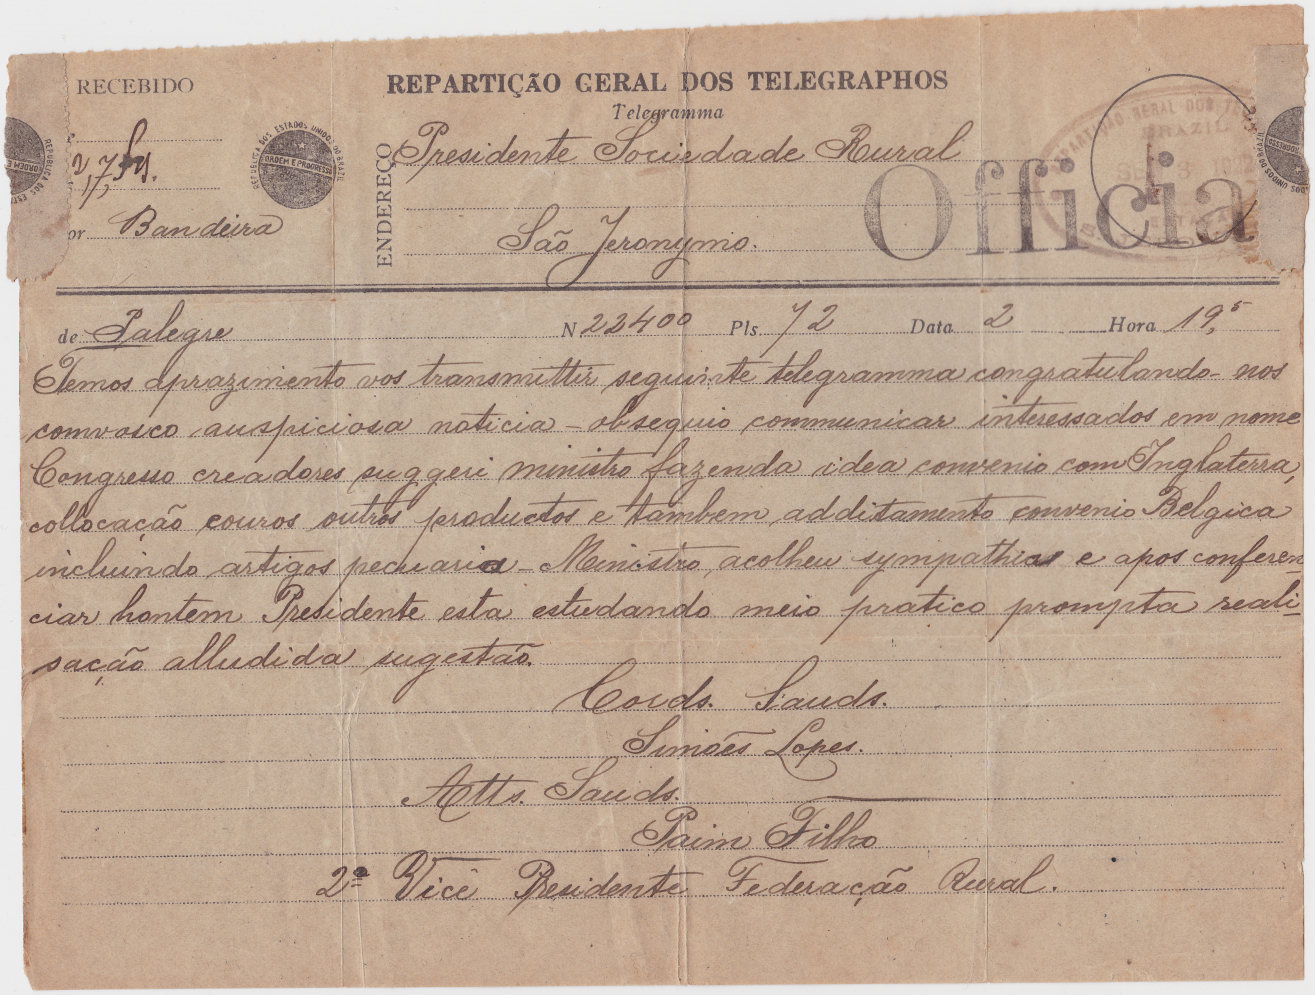 RECEBIDO
REPARTIÇÃO GERAL DOS TELEGRAPHOS
Telegramma
ENDEREÇO
Presidente Sociedade Rural
São Jeronymo.
or Bandeira
REPUBLICA DOS ESTADOS UNIDOS DO BRAZIL
ORDEM E PROGRESSO
Officia
BRAZIL
de Palegre N. 22400 Pls. 72 Data 2 Hora 19,5
Temos aprazimento vos transmittir seguinte telegramma congratulando-nos
comvosco auspiciosa noticia - obsequio communicar interessados em nome
Congresso creadores suggeri ministro fazenda idea convenio com Inglaterra,
collocação couros outros productos e tambem additamento convenio Belgica
incluindo artigos pecuaria - Ministro acolheu sympathias e apos conferen
ciar hontem Presidente esta estudando meio pratico prompta reali
sação alludida sugestão.
Cords. Sauds.
Simões Lopes.
Atts. Sauds.
Paim Filho
2º Vice Presidente Federação Rural.